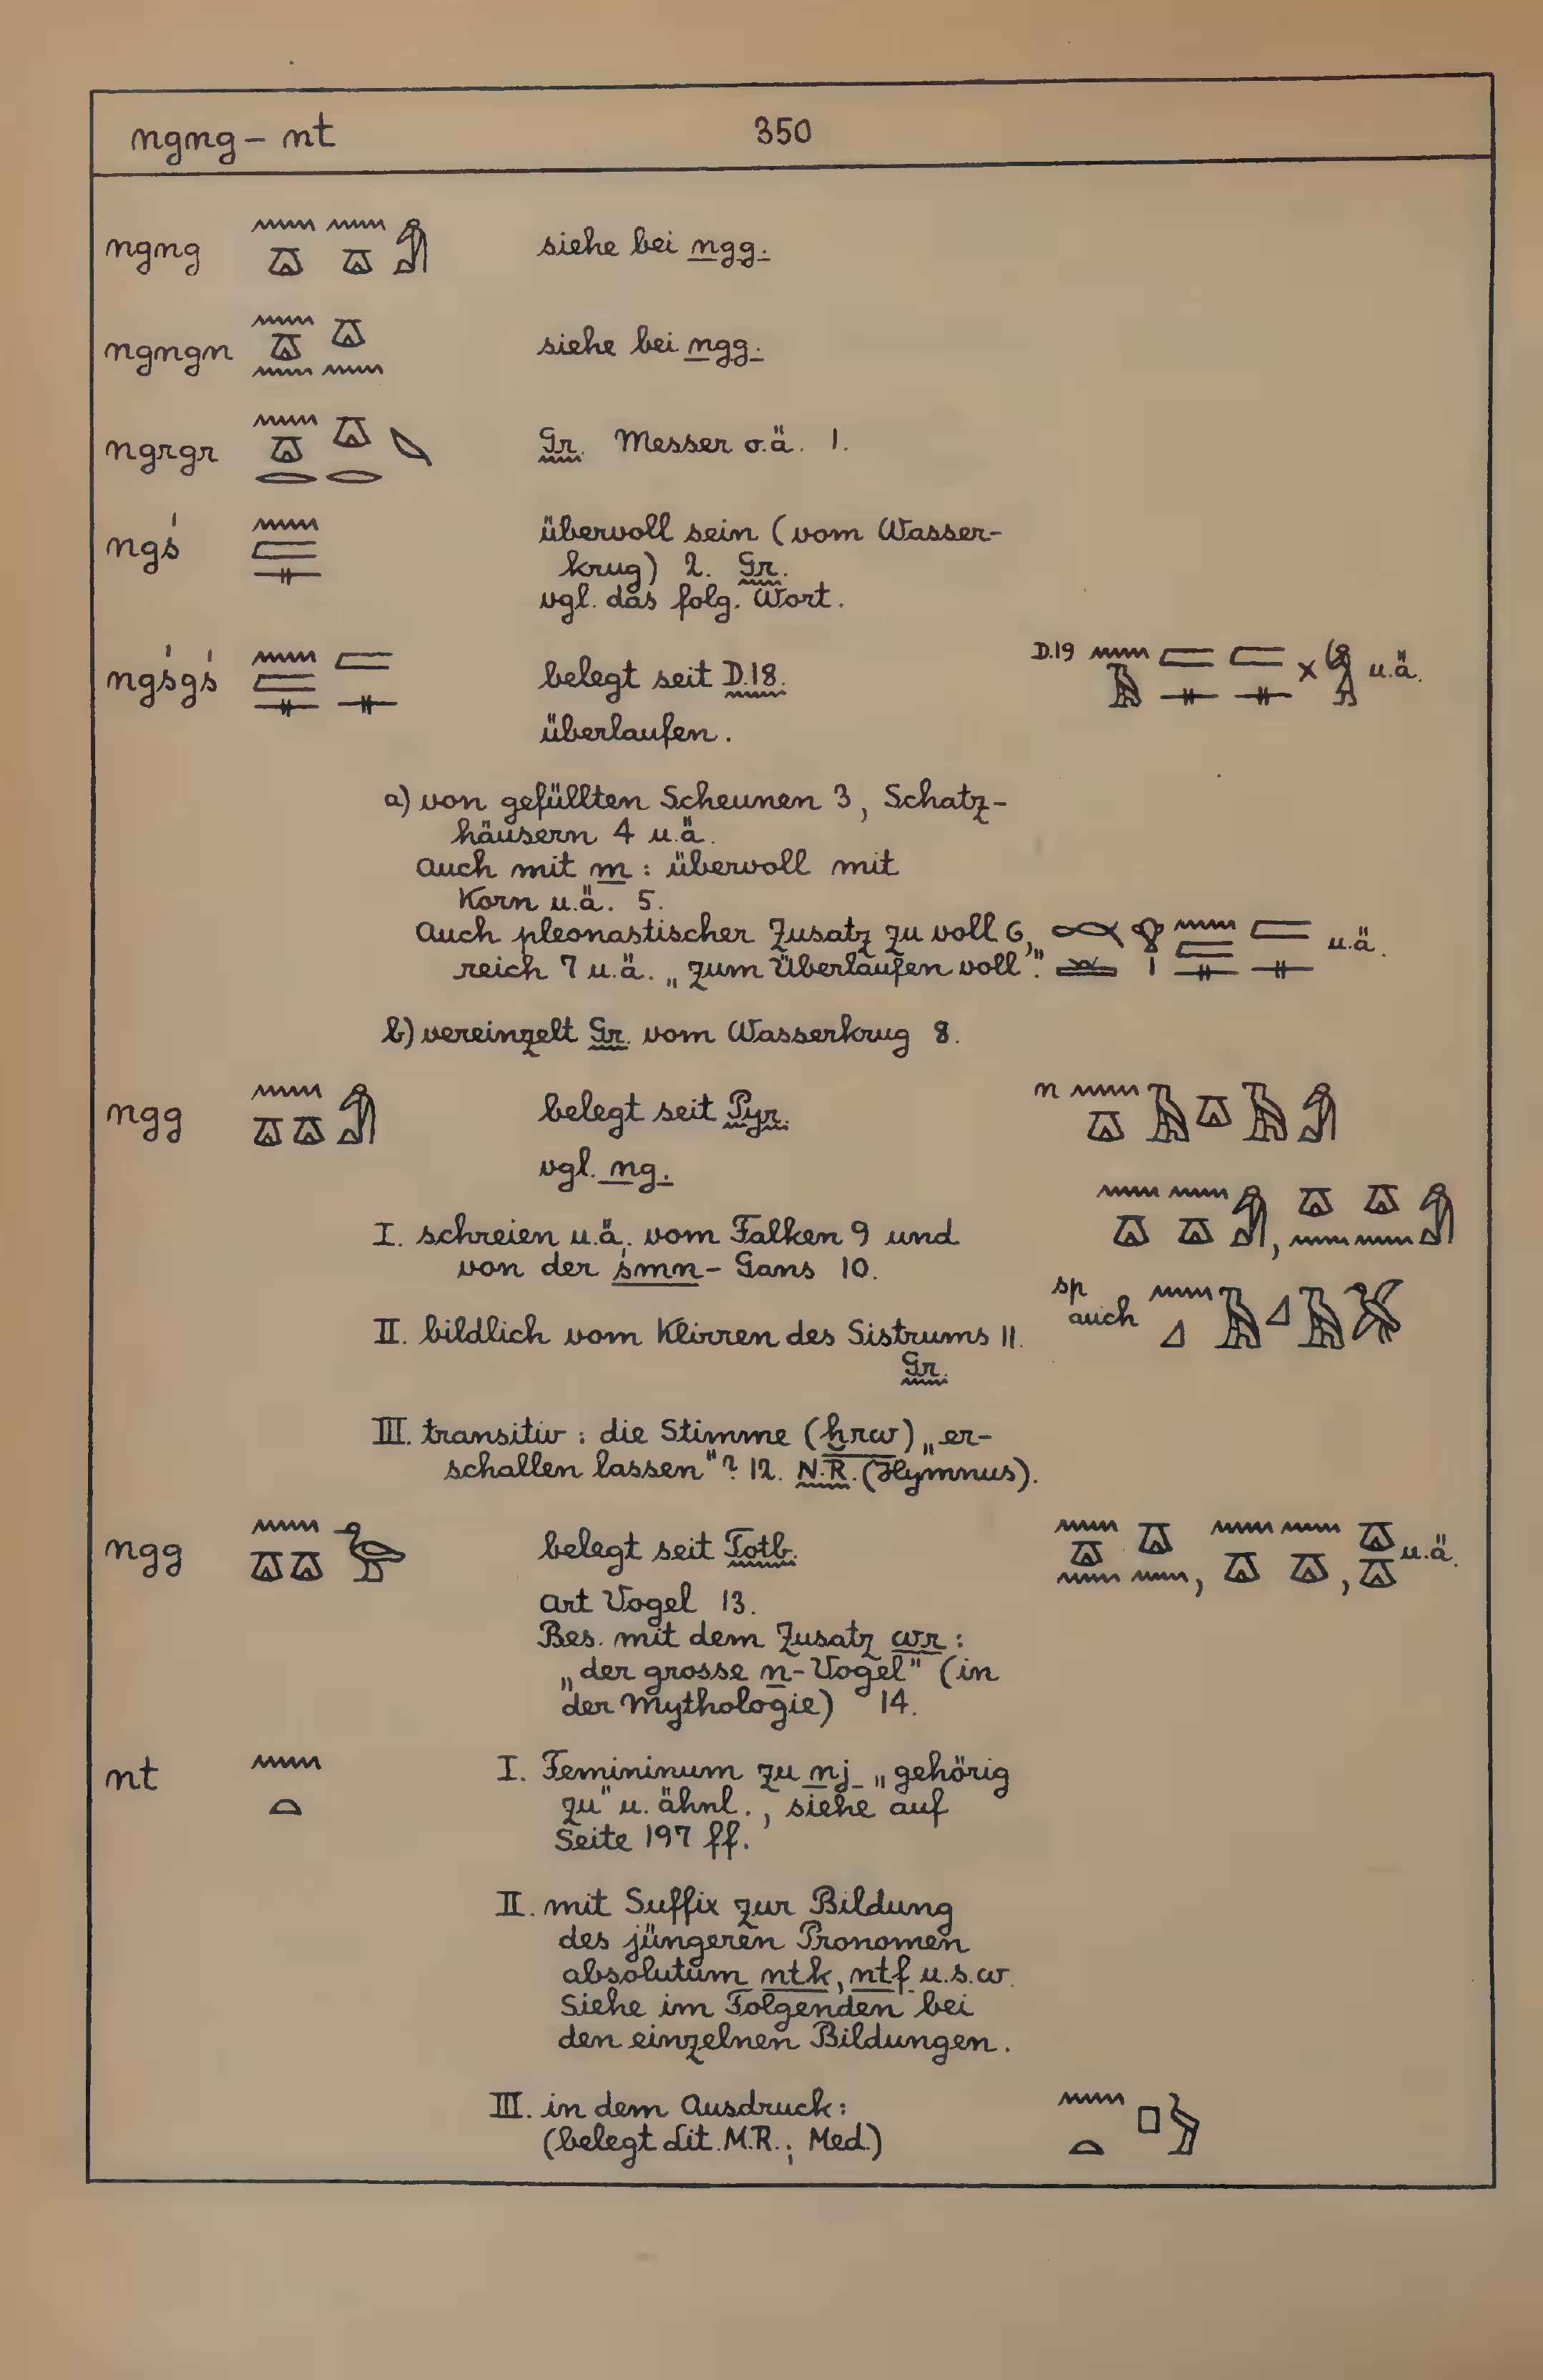 ngng – nt 350
ngng 𓈖𓎼𓈖𓎼 siehe bei ngg.
ngngn 𓈖𓎼𓈖𓎼𓈖 siehe bei ngg.
ngrgr 𓈖𓎼𓂋𓎼𓂋𓌪 Gr. Messer o.ä. 1.
ngś 𓈖𓐛𓊃 übervoll sein (vom Wasser-
krug) 2. Gr.
vgl. das folg. Wort.
ngśgś 𓈖𓐛𓊃𓐛𓊃 belegt seit D.18. D.19 u.ä.
überlaufen.
a) von gefüllten Scheunen 3, Schatz-
häusern 4 u.ä.
Auch mit m : übervoll mit
Korn u.ä. 5.
Auch pleonastischer Zusatz zu voll 6, u.ä.
reich 7 u.ä. „zum Überlaufen voll“.
b) vereinzelt Gr. vom Wasserkrug 8.
ngg 𓈖𓎼𓎼 belegt seit Pyr. n
vgl. ng.
I. schreien u.ä. vom Falken 9 und
von der śmn- Gans 10.
sp
auch
II. bildlich vom Klirren des Sistrums 11.
Gr.
III. transitiv : die Stimme (ḫrw) „er-
schallen lassen“? 12. N.R. (Hymnus).
ngg 𓈖𓎼𓎼𓅬 belegt seit Totb. 𓈖𓎼𓈖𓎼𓈖, 𓈖𓎼𓈖𓎼, 𓎼𓎼 u.ä.
Art Vogel 13.
Bes. mit dem Zusatz wr :
„der grosse n-Vogel“ (in
der Mythologie) 14.
nt 𓈖𓏏 I. Femininum zu nj „gehörig
zu“ u. ähnl., siehe auf
Seite 197 ff.
II. mit Suffix zur Bildung
des jüngeren Pronomen
absolutum ntk, ntf u.s.w.
Siehe im Folgenden bei
den einzelnen Bildungen.
III. in dem Ausdruck: 𓈖𓏏𓊪𓅱
(belegt Lit. M.R.; Med.)